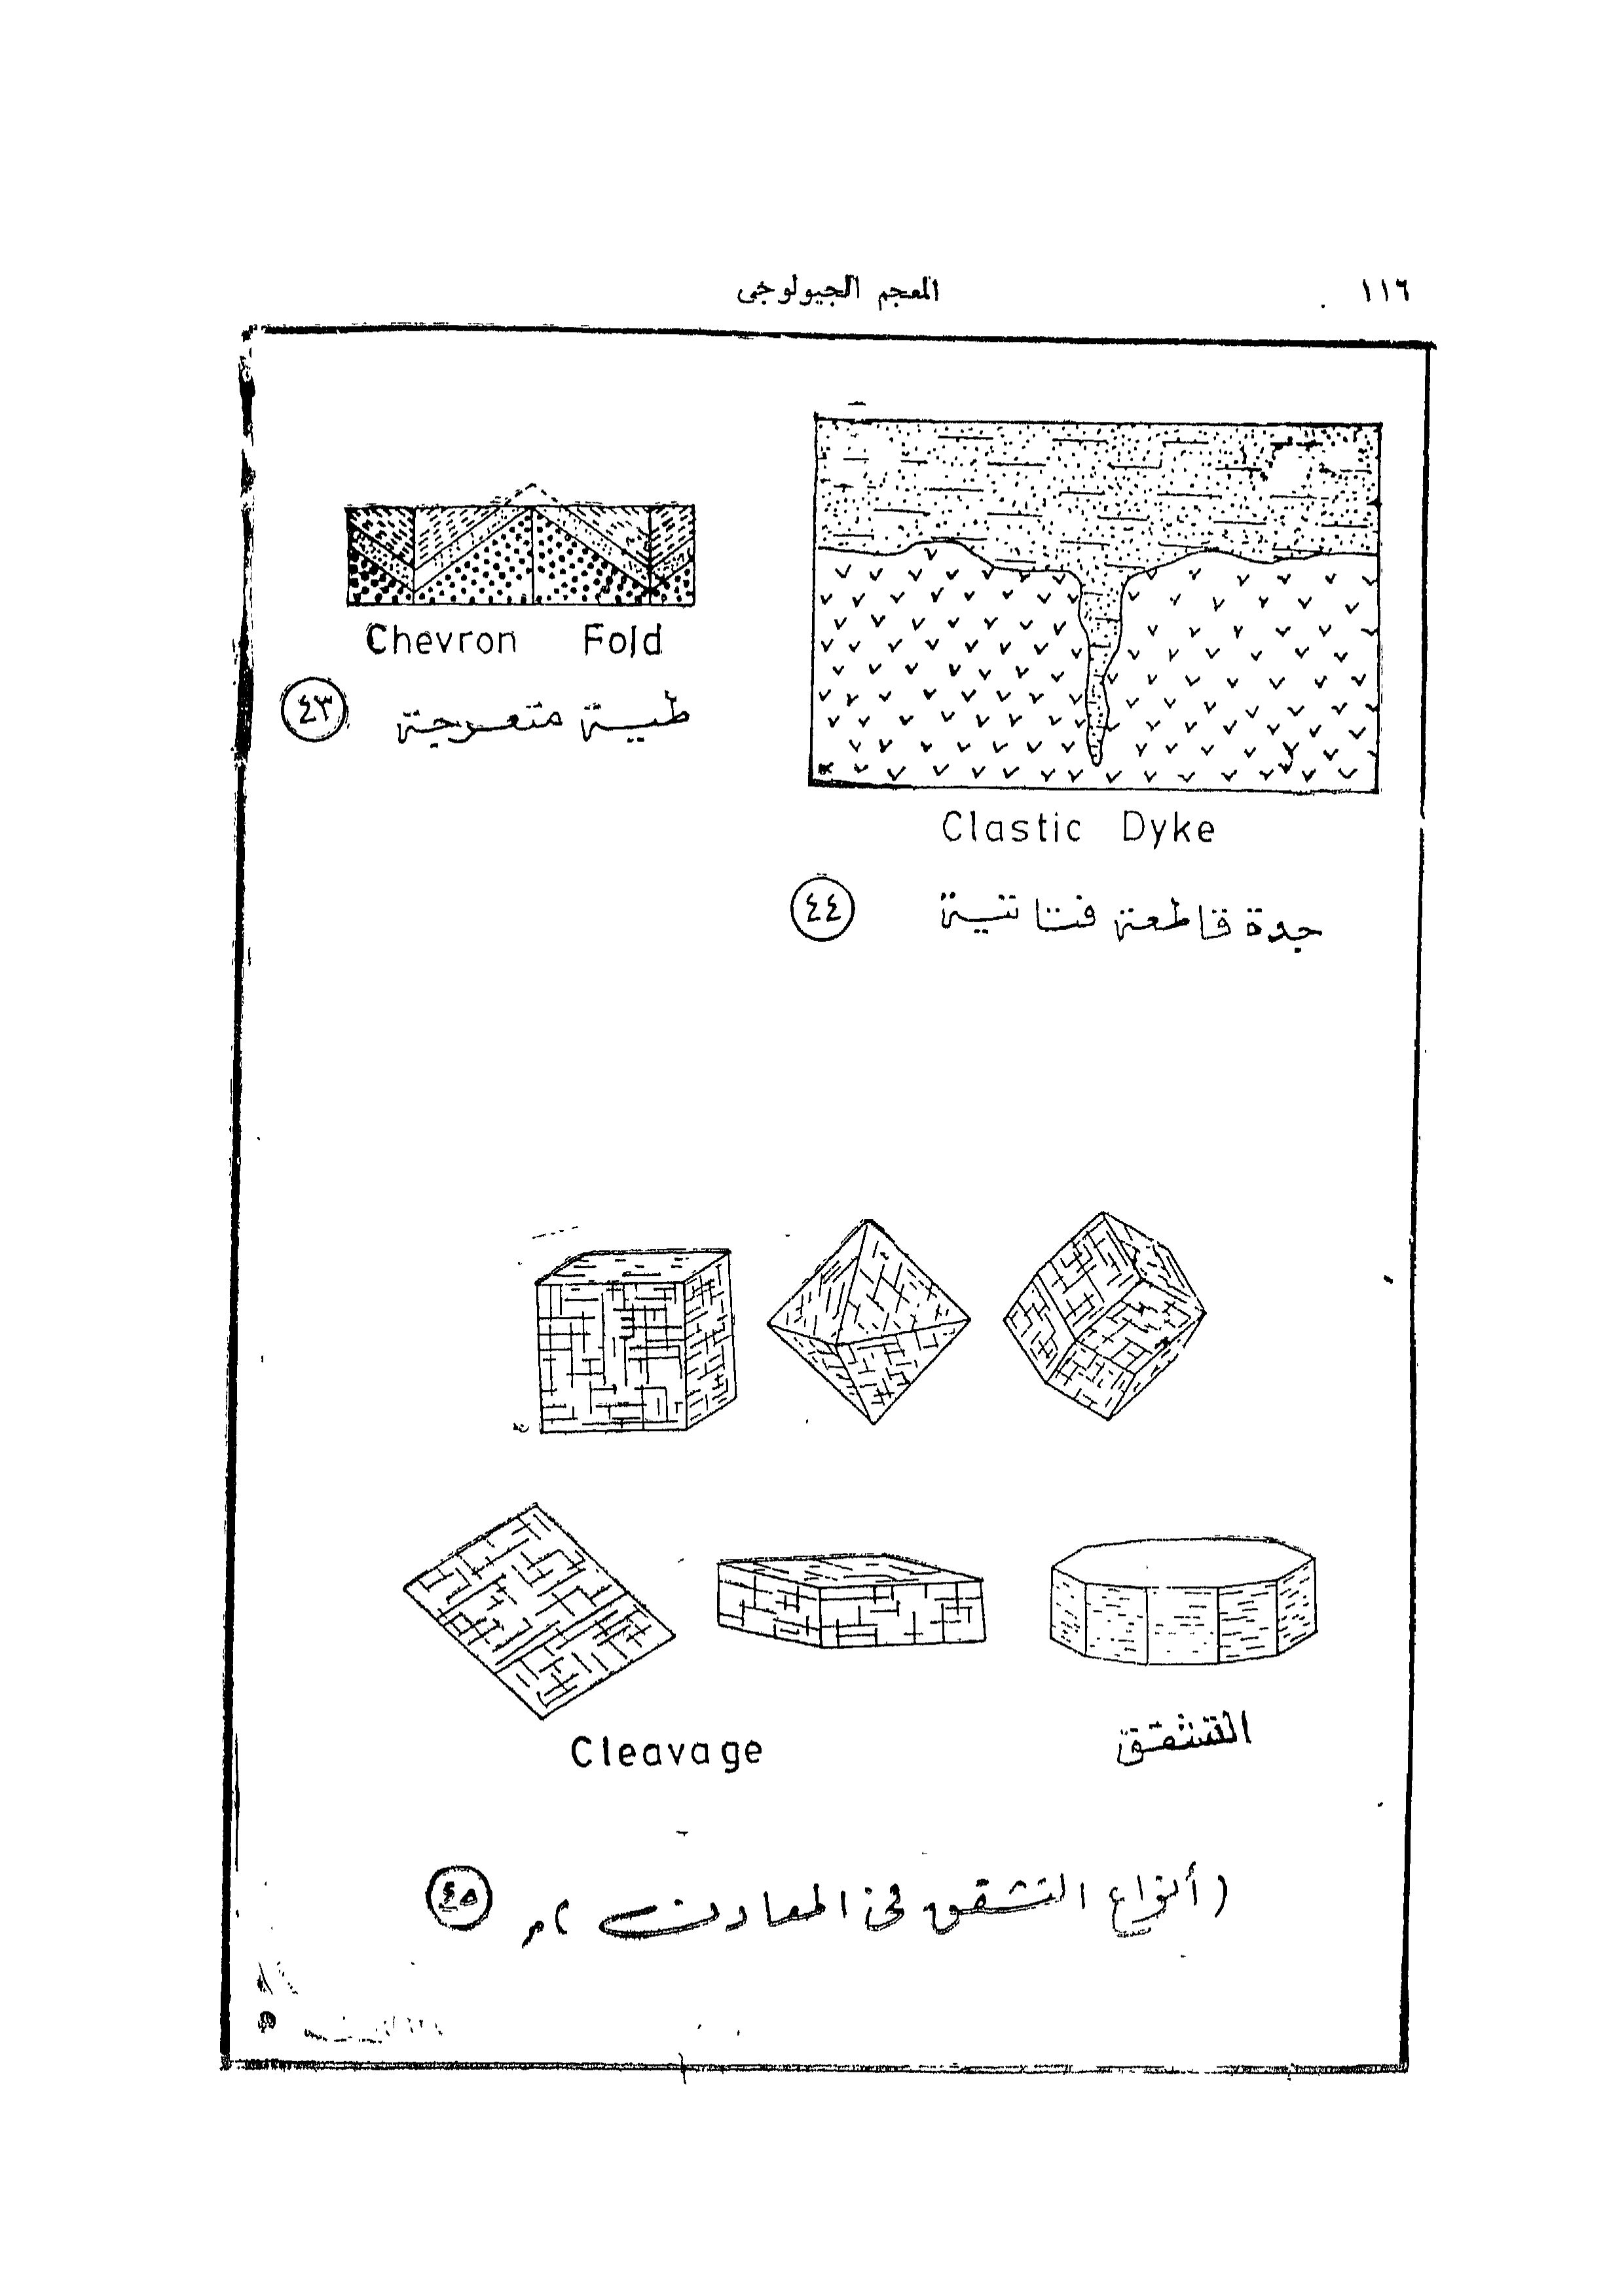 ١١٦
المعجم الجيولوجى
Chevron Fold
طية متعرجة
٤٣
Clastic Dyke
جدة قاطعة فتاتية
٤٤
Cleavage
التشقق
(أنواع التشقق في المعادن)
٤٥